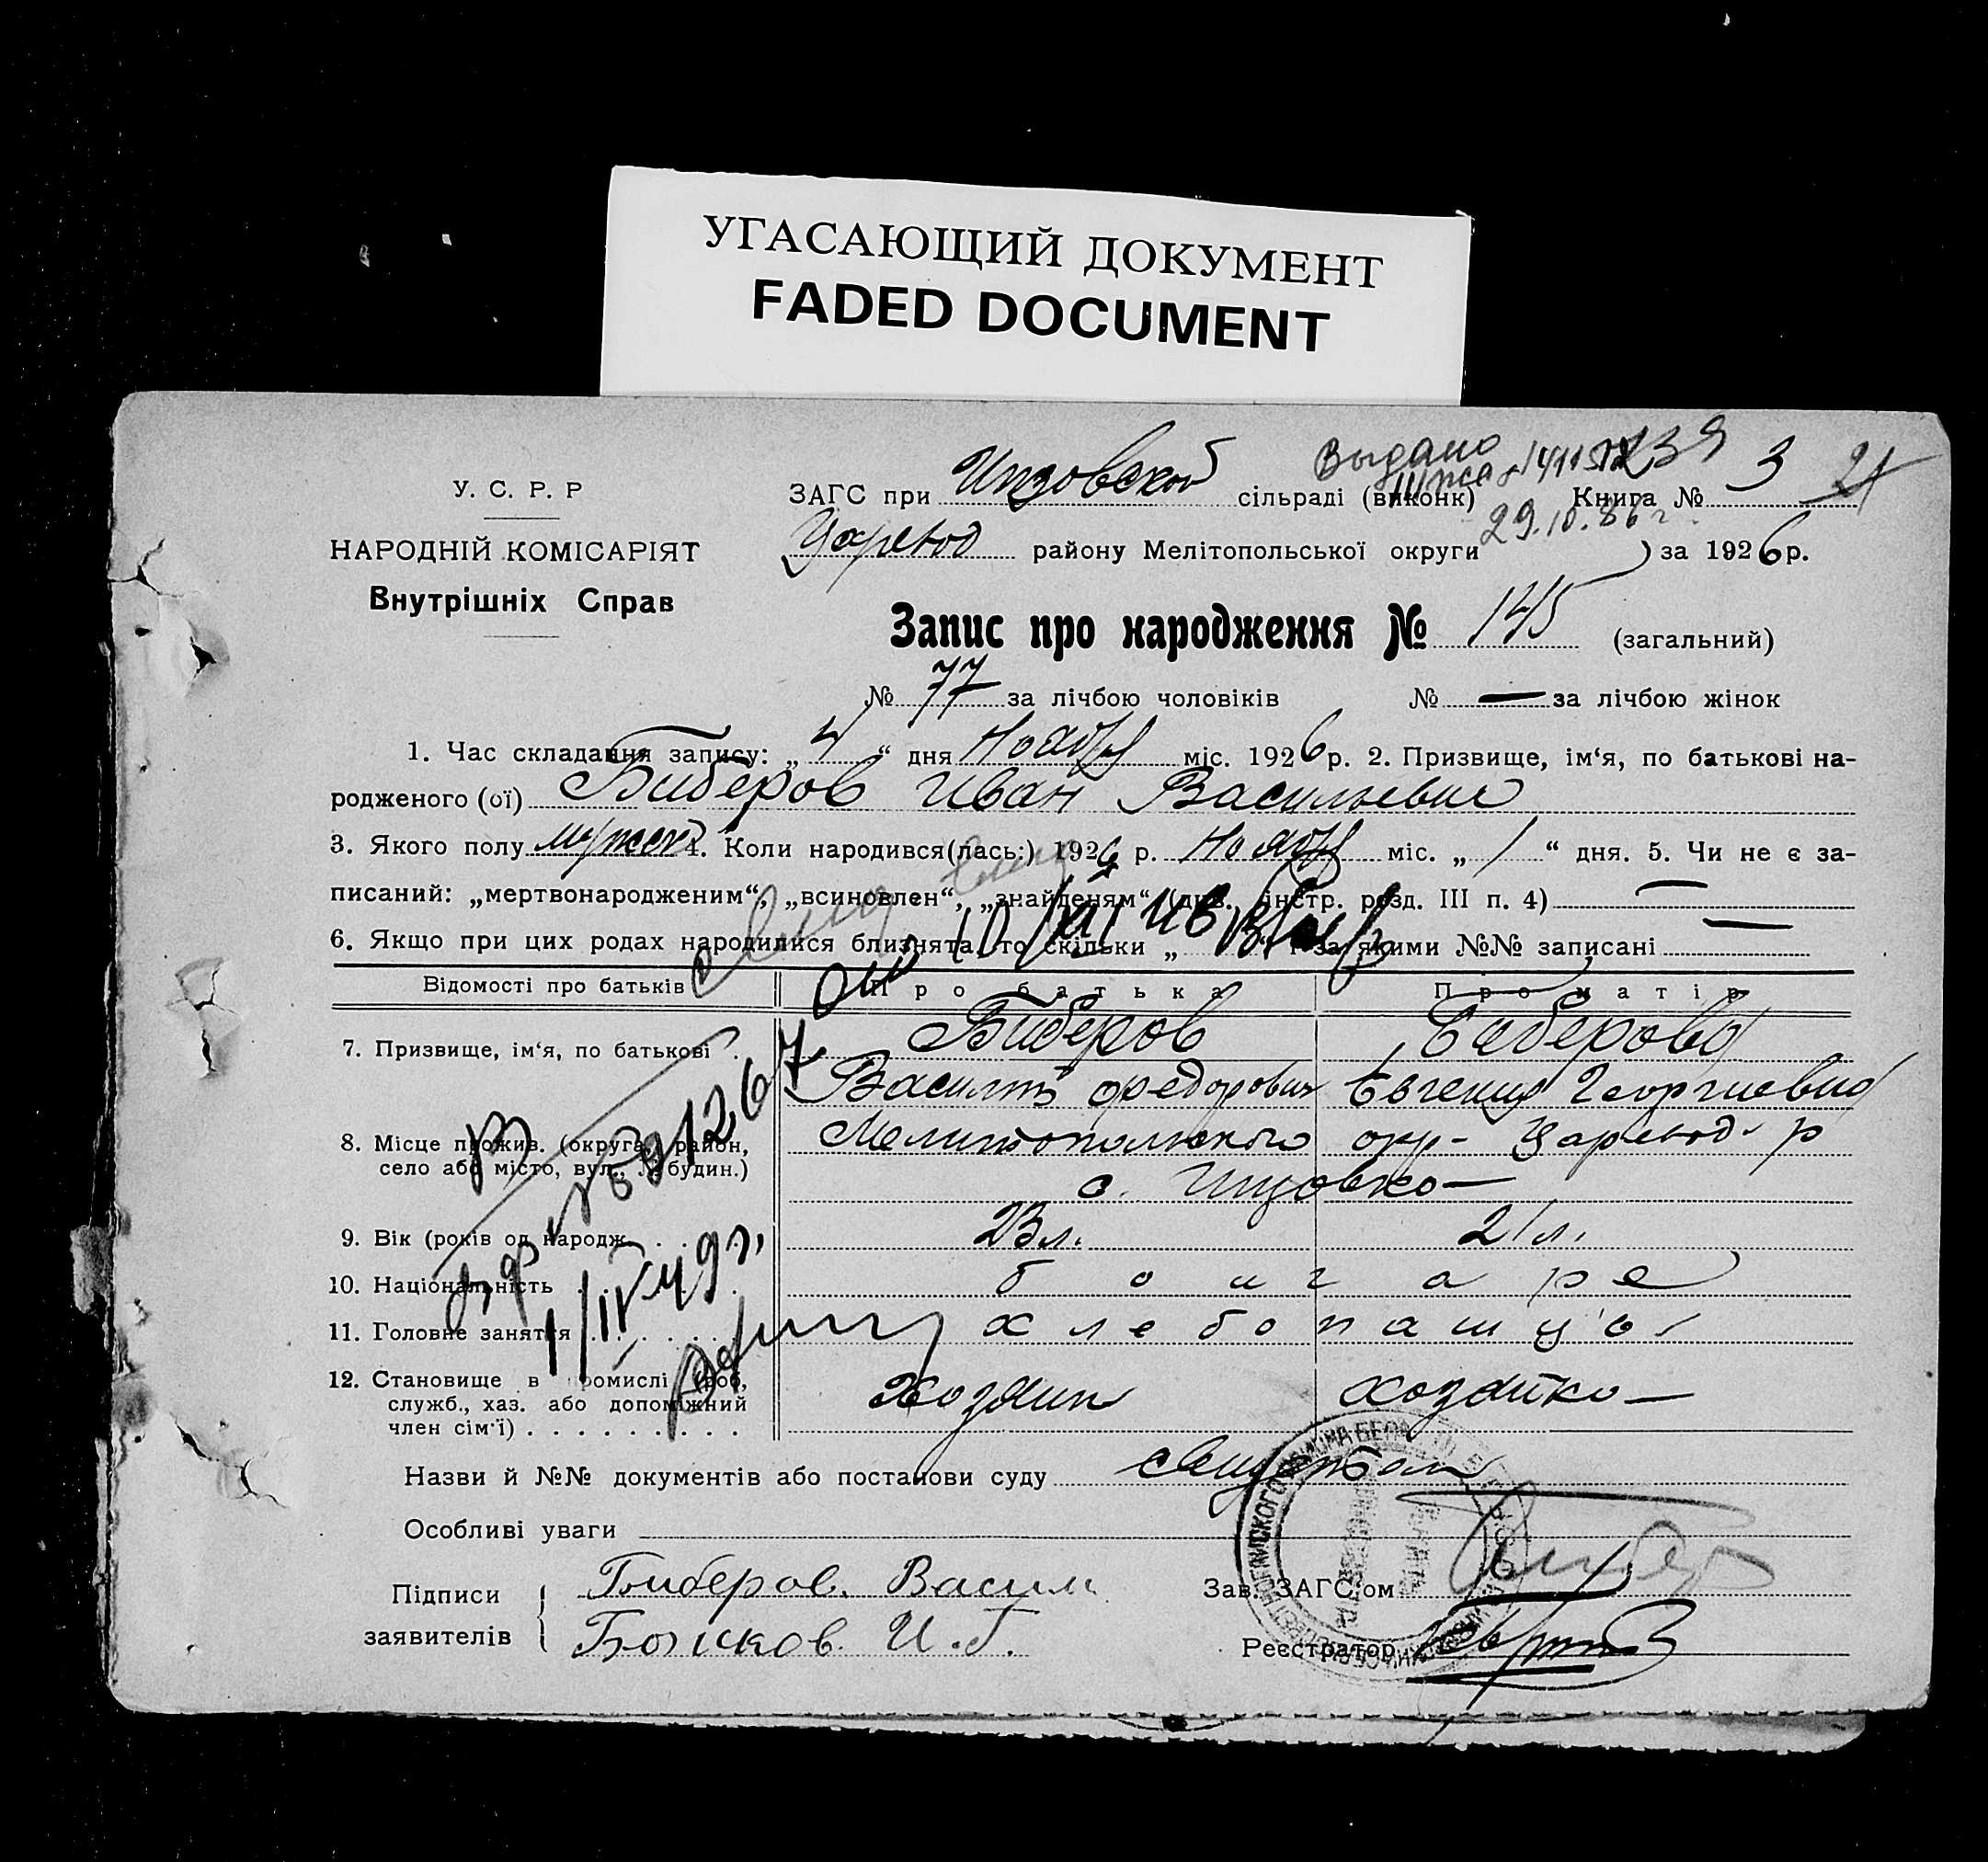 УГАСАЮЩИЙ ДОКУМЕНТ
FADED DOCUMENT
У. С. Р. Р
НАРОДНІЙ КОМІСАРІЯТ
Внутрішніх Справ
Выдано
ЗАГС при Инзовской сільраді (виконк) Книга № 3 21
29.10.86 г.
Царевод району Мелітопольської округи за 1926 р.
Запис про народження № 145 (загальний)
№ 77 за лічбою чоловіків № — за лічбою жінок
1. Час складання запису: „ 4 “ дня ноября міс. 1926 р. 2. Призвище, ім‘я, по батькові на-
родженого (ої) Биберов Иван Васильевич
3. Якого полу мужск 4. Коли народився(лась:) 1926 р. ноября міс. „ 1 “ дня. 5. Чи не є за-
писаний: „мертвонародженим“, „всиновлен“, „знайденям“ (див. інстр. розд. III п. 4) —
6. Якщо при цих родах народилися близнята, то скільки „ і за якими №№ записані —
Відомості про батьків Про батька Про матір
7. Призвище, ім‘я, по батькові . Биберов Биберова
Василий Федорович Евгения Георгиевна
8. Місце прожив. (округа, район, Мелитопольского окр- Царевод- р
село або місто, вул., № будин.) с. Инзовко—
9. Вік (років од народж. . . . 23 л. 21 л.
10. Національність . . . . . болгаре
11. Головне заняття . . . . . . . хлебопашцы
1/IV 49 г.
12. Становище в промислі (роб, хозяин хозяйка—
служб., хаз. або допоміжний
член сім‘ї) . . . . . . . . .
Назви й №№ документів або постанови суду
Особливі уваги
Підписи Биберов. Васил
заявителів Боюков. И. Г.
Зав. ЗАГС‘ом
Реєстратор